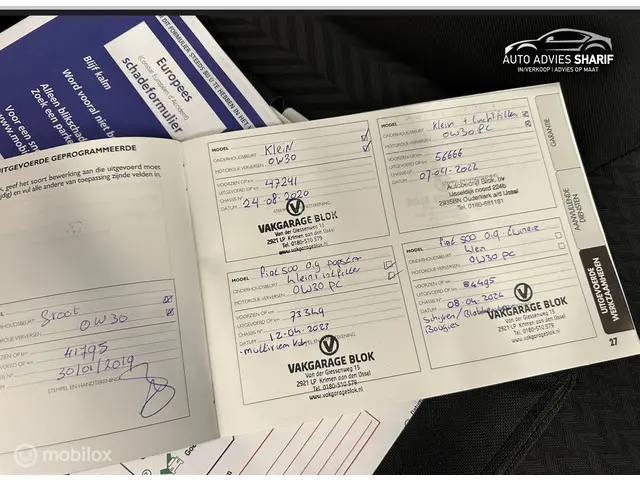 AUTO ADVIES SHARIF
IN/VERKOOP | ADVIES OP MAAT
DIT FORMULIER STEEDS BIJ U TE HEBBEN IN HET
Europees
schadeformulier
(Constat Européen d'Accident)
Blijf kalm
Word vooral niet b
Alleen blikschad
Zoek een parke
Voor een sn
www.mobi
ITGEVOERDE GEPROGRAMMEERDE
, geef het soort bewerking aan die uitgevoerd moet
en vul alle andere van toepassing zijnde velden in.
Groot
OW30
41795
30/01/2019
STEMPEL EN HANDTEKENING
MODEL
ONDERHOUDSBEURT Klein
MOTOROLIE VERVERSEN OW30
VOORZIEN OP km
UITGEVOERD OP km 47241
CHASSIS N°
DATUM 24-08-2020
VAKGARAGE BLOK
Van der Giessenweg 15
2921 LP Krimpen aan den IJssel
Tel. 0180-510 579
MODEL
ONDERHOUDSBEURT Klein + Luchtfilter
MOTOROLIE VERVERSEN OW30 PC
VOORZIEN OP km
UITGEVOERD OP km 56666
CHASSIS N°
DATUM 07-04-2022
Autobedrijf Blok bv
IJsseldijk noord 224b
2935BN Ouderkerk a/d IJssel
Tel. 0180-681161
MODEL Fiat 500 0.9
ONDERHOUDSBEURT Klein
MOTOROLIE VERVERSEN OW30 PC
VOORZIEN OP km
UITGEVOERD OP km 73349
CHASSIS N°
DATUM 12-04-2023
VAKGARAGE BLOK
Van der Giessenweg 15
2921 LP Krimpen aan den IJssel
Tel. 0180-510 579
www.vakgarageblok.nl
MODEL Fiat 500 0.9
ONDERHOUDSBEURT
MOTOROLIE VERVERSEN OW30 PC
VOORZIEN OP km
UITGEVOERD OP km 84495
CHASSIS N°
DATUM 08-04-2024
Bougies
VAKGARAGE BLOK
Van der Giessenweg 15
2921 LP Krimpen aan den IJssel
Tel. 0180-510 579
www.vakgarageblok.nl
GARANTIE
AANVULLENDE
DIENSTEN
UITGEVOERDE
WERKZAAMHEDEN
27
mobilox